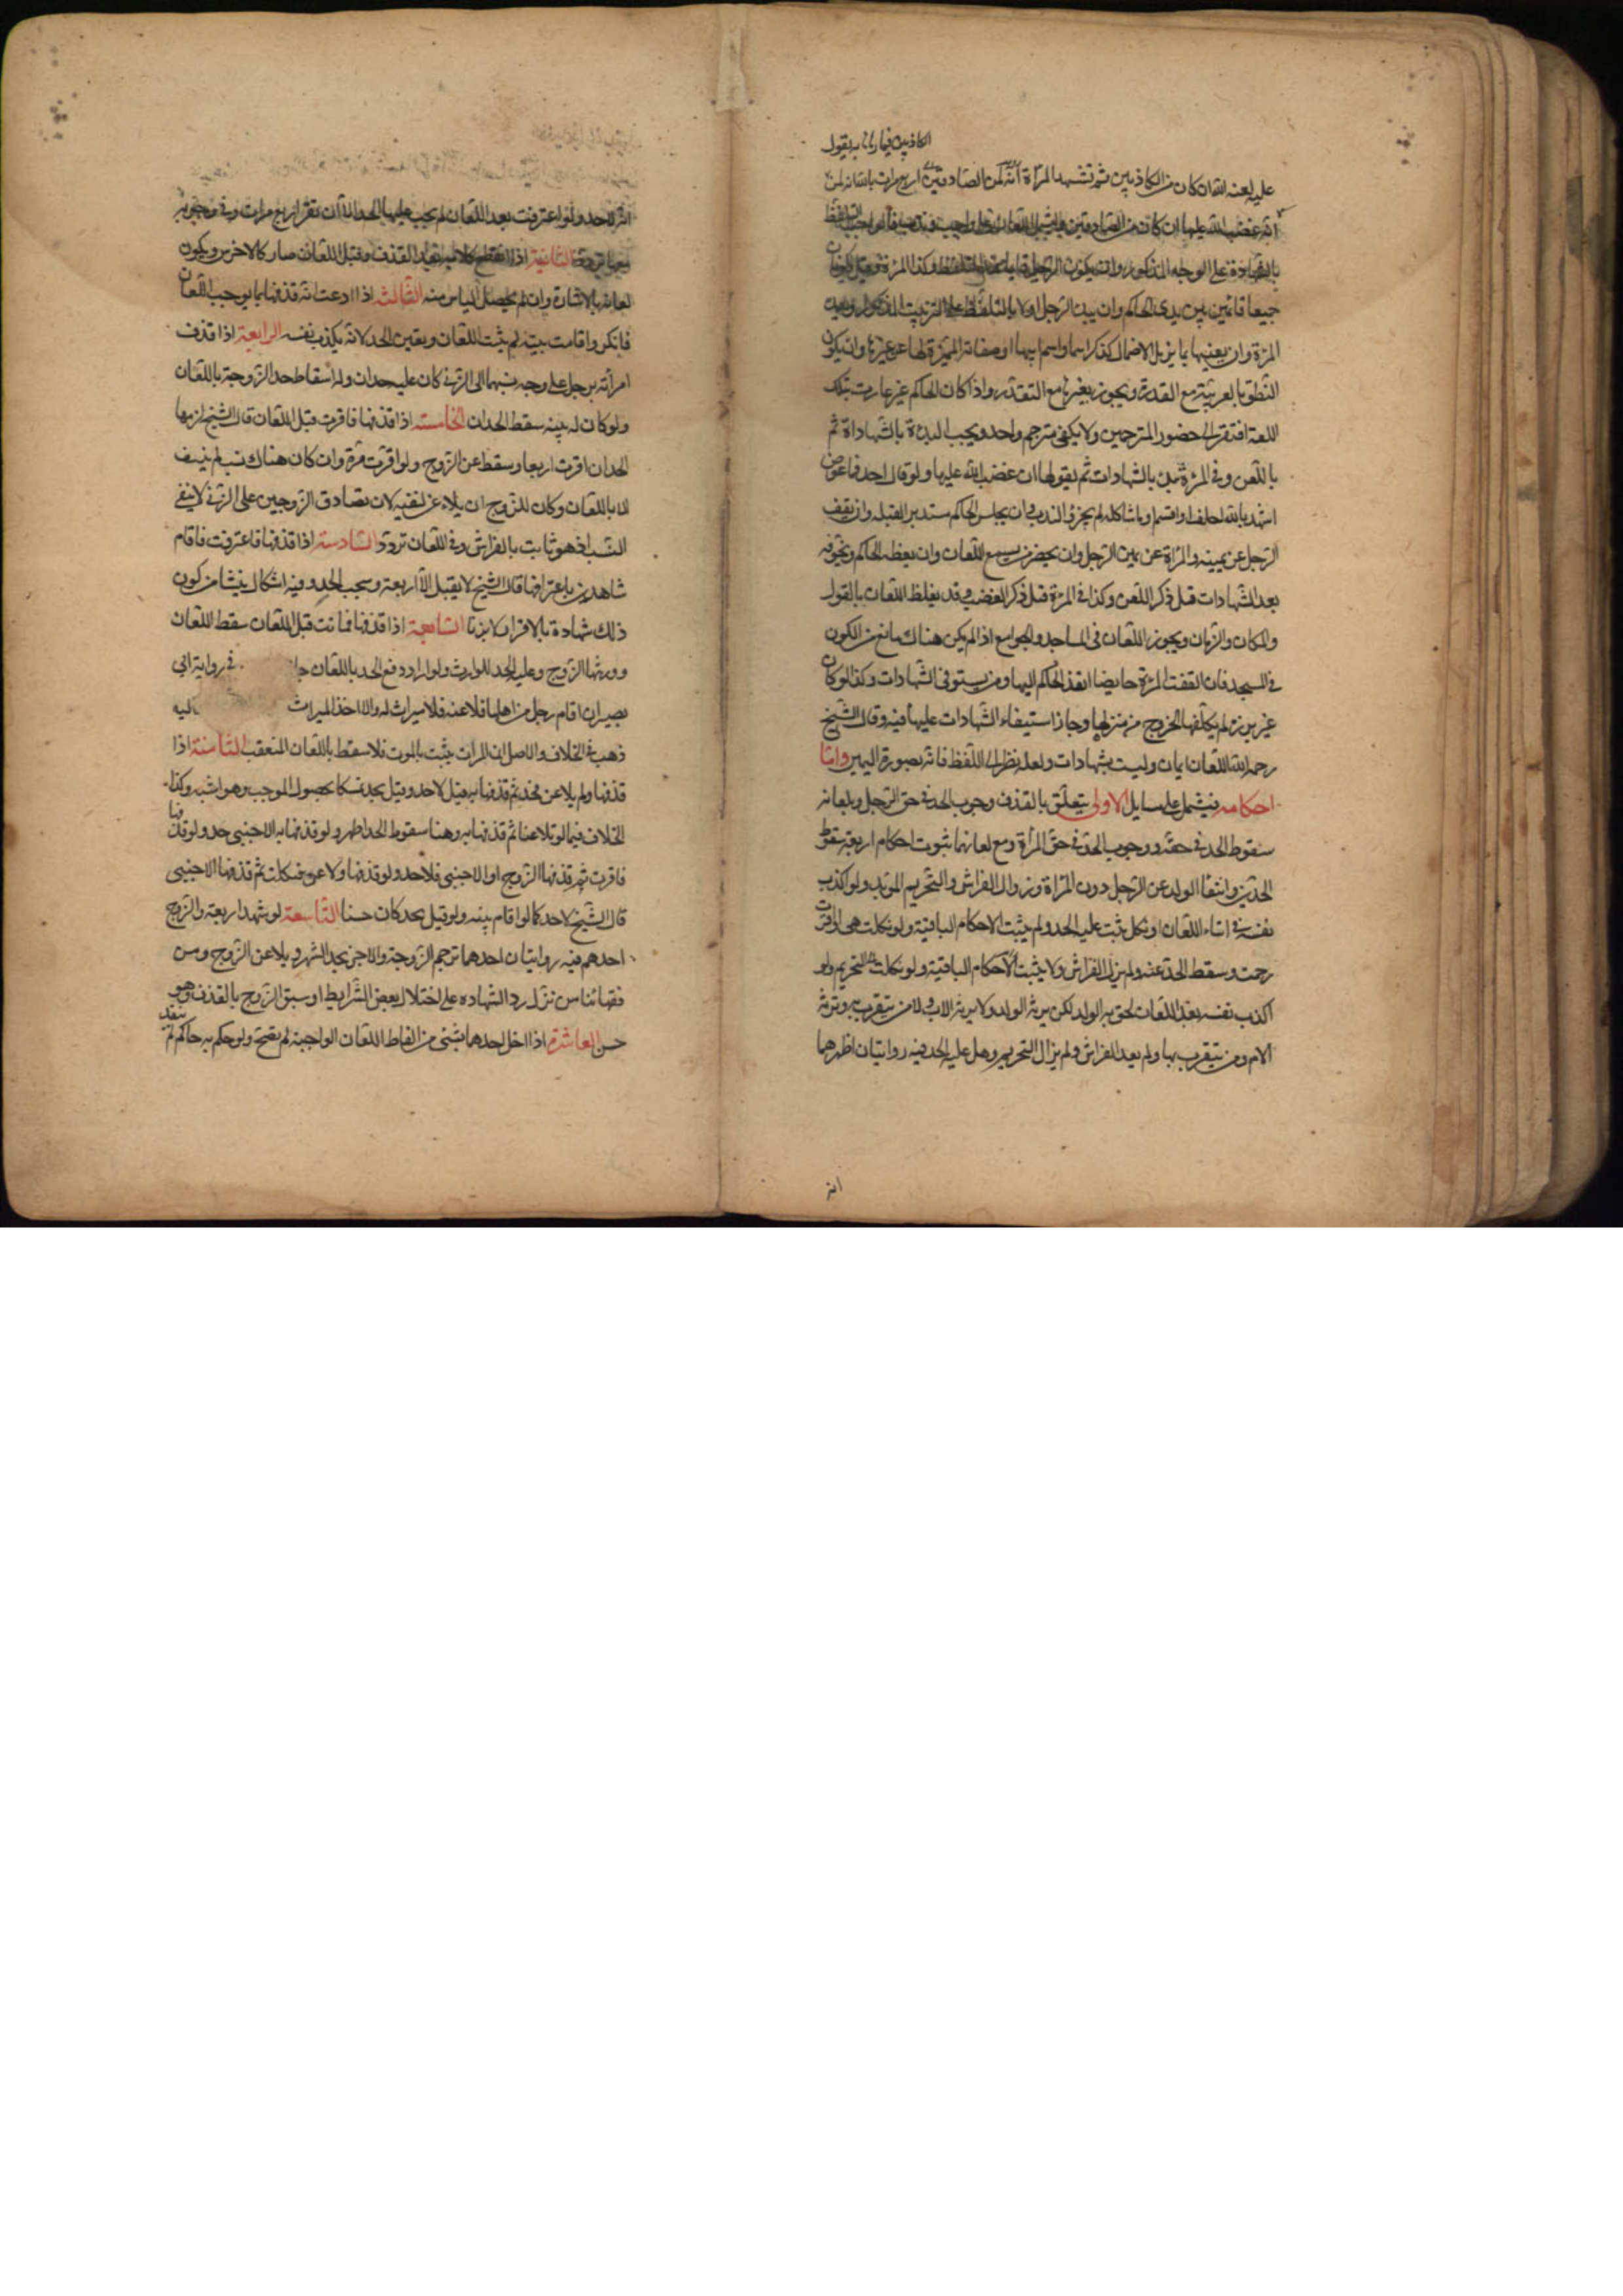 الكاذبين فيما رماني به يقول
عليه لعنه الله ان كان من الكاذبين ثم تشهد المرأة انه لمن الصادقين اربع مرات بالله انه لمن
ان غضب الله عليها ان كان من الصادقين
بالشهادة على الوجه المذكور وان يكون الرجل قايما عند التلفظ وكذا المرءة وقيل يكونان
جميعا قائمين بين يدى الحاكم وان يبدء الرجل اولا بالتلفظ على الترتيب المذكور
المرءة وان يعينها بما يزيل الاحتمال كذكر اسمها واسم ابيها او صفاتها المميزة لها عن غيرها وان يكون
النطق بالعربية مع القدرة ويجوز بغيرها مع التعذر واذا كان الحاكم غير عارف بتلك
اللغة افتقر الى حضور المترجمين ولا يكفى مترجم واحد ويجب البدءة بالشهادة ثم
باللعن وفى المرءة تبدء بالشهادات ثم بقولها ان غضب الله عليها ولو قال احدهما عوض
اشهد بالله احلف او اقسم او ما شاكله لم يجزى الندب ان يجلس الحاكم مستدبر القبله وان يقف
الرجل عن يمينه والمراة عن يمين الرجل وان يحضر من يسمع اللعان وان يعظه الحاكم ويخوفه
بعد الشهادات قبل ذكر اللعن وكذا فى المرءة قبل ذكر الغضب وقد يغلظ اللعان بالقول
والمكان والزمان ويجوز اللعان فى المساجد والجوامع اذا لم يكن هناك مانع من الكون
فى المسجد فان اتفقت المرءة حايضا انفذ الحاكم اليها من يستوفى الشهادات وكذا لو كان
غير برزة لم يكلفها الخروج من منزلها وجاز استيفاء الشهادات عليها فيه وقال الشيخ
رحمه الله اللعان ايمان وليست بشهادات ولعله نظر الى اللفظ فانه بصورة اليمين واما
احكامه فيشمل على مسايل الاولى يتعلق بالقذف وجوب الحد فى حق الرجل وبلعانه
سقوط الحد فى حقه ووجوب الحد فى حق المرأة ومع لعانهما ثبوت احكام اربعة سقوط
الحدين وانتفا الولد عن الرجل دون المرأة وزوال الفراش والتحريم الموبد ولو اكذب
نفسه فى اثناء اللعان او نكل ثبت عليه الحد ولم يثبت الاحكام الباقية ولو نكلت هى او اقرت
رجمت وسقط الحد عنه ولم يزل الفراش ولا يثبت الاحكام الباقية ولو نكلت التحريم ولو
اكذب نفسه بعد اللعان لحق به الولد لكن يرثه الولد ولا يرثه الاب ولا من يتقرب به وترثه
الام ومن يتقرب بها ولم يعد الفراش ولم يزال التحريم وهل عليه الحد فيه روايتان اظهرهما
انه
انه لا حد ولو اعترفت بعد اللعان لم يجب عليها الحد الا ان تقر اربع مرات وفى وجوبه
معها تردد الثانية اذا انقطع كلامه بعد القذف وقبل اللعان صار كالاخرس ويكون
لعانه بالاشارة وان لم يحصل الياس منه الثالثه اذا ادعت انه قذفها بما يوجب اللعان
فانكر واقامت بينة لم يثبت اللعان وتعين الحد لانه يكذب نفسه الرابعة اذا قذف
امرأته برجل على وجه نسبهما الى الزنى كان عليه حدان وله اسقاط حد الزوجة باللعان
ولو كان له بينه سقط الحدان الخامسة اذا قذفها فاقرت قبل اللعان قال الشيخ لزمها
الحد ان اقرت اربعا وسقط عن الزوج ولو اقرت مرة وان كان هناك نسب لم ينتف
الا باللعان وكان للزوج ان يلاعن لنفيه لان تصادق الزوجين على الزنى لا ينفى
النسب اذ هو ثابت بالفراش وفى اللعان تردد السادسة اذا قذفها فاعترفت فاقام
شاهدين باعترافها قال الشيخ لا يقبل الا اربعة ويجب الحد وفيه اشكال ينشا من كون
ذلك شهادة بالاقرار لا بزنا السابعة اذا قذفها فماتت قبل اللعان سقط اللعان
وورثها الزوج وعليه الحد للوارث ولو اراد دفع الحد باللعان جا فى رواية ابى
بصير ان قام رجل من اهلها فلاعنه فلا ميراث له والا اخذ الميراث اليه
ذهب فى الخلاف والاصل ان الميراث يثبت بالموت فلا سقط باللعان المتعقب الثامنة اذا
قذفها ولم يلاعن فحد ثم قذفها به قيل لا حد وقيل يحد تمسكا بحصول الموجب وهو اشبه وكذا
الخلاف فيما لو تلاعنا ثم قذفها به وهنا سقوط الحد اظهر ولو قذفها به الاجنبى حد ولو قذفها
فاقرت ثم قذفها الزوج او الاجنبى فلا حد ولو قذفها ولاعن فنكلت ثم قذفها الاجنبى
قال الشيخ لا حد كما لو اقام بينه ولو قيل يحد كان حسنا التاسعة لو شهد اربعة والزوج
احدهم فيه روايتان احدهما ترجم الزوجة والاخرى يحد الشهود ويلاعن الزوج ومن
فقهائنا من نزل رد الشهاده على اختلال بعض الشرايط او سبق الزوج بالقذف وهو
حسن العاشرة اذا اخل احدهما بشئ من الفاظ اللعان الواجبة لم يصح ولو حكم به حاكم لم ينفذ